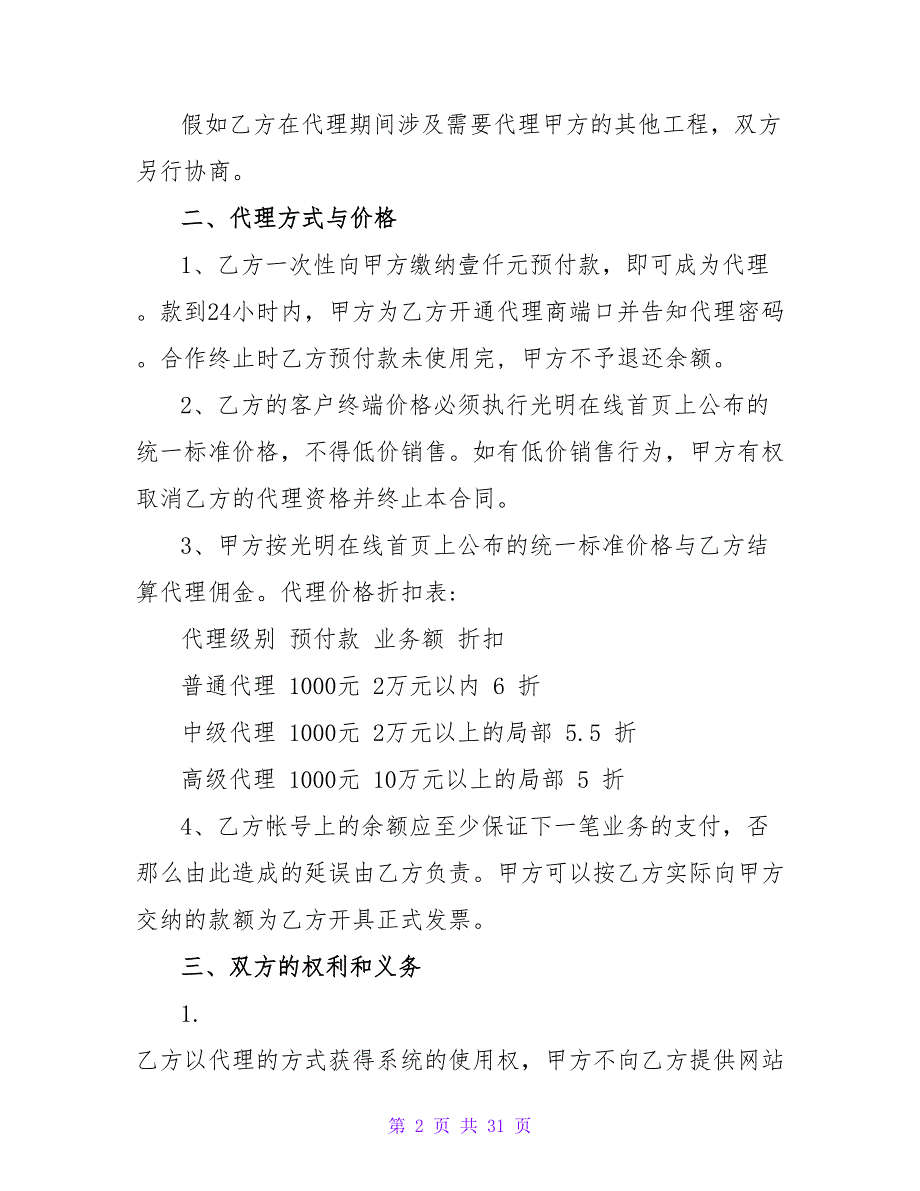 假如乙方在代理期间涉及需要代理甲方的其他工程，双方
另行协商。
二、代理方式与价格
1、乙方一次性向甲方缴纳壹仟元预付款，即可成为代理
。款到24小时内，甲方为乙方开通代理商端口并告知代理密码
。合作终止时乙方预付款未使用完，甲方不予退还余额。
2、乙方的客户终端价格必须执行光明在线首页上公布的
统一标准价格，不得低价销售。如有低价销售行为，甲方有权
取消乙方的代理资格并终止本合同。
3、甲方按光明在线首页上公布的统一标准价格与乙方结
算代理佣金。代理价格折扣表:
代理级别 预付款 业务额 折扣
普通代理 1000元 2万元以内 6 折
中级代理 1000元 2万元以上的局部 5.5 折
高级代理 1000元 10万元以上的局部 5 折
4、乙方帐号上的余额应至少保证下一笔业务的支付，否
那么由此造成的延误由乙方负责。甲方可以按乙方实际向甲方
交纳的款额为乙方开具正式发票。
三、双方的权利和义务
1.
乙方以代理的方式获得系统的使用权，甲方不向乙方提供网站
第 2 页 共 31 页